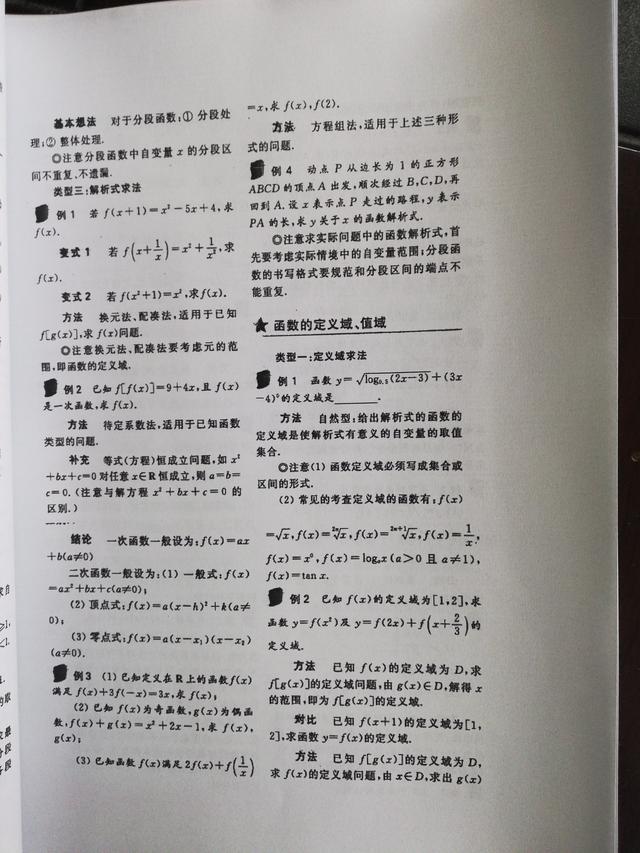 基本想法 对于分段函数:①分段处
理;②整体处理.
◎注意分段函数中自变量 x 的分段区
间不重复、不遗漏.
类型三:解析式求法
例1 若 f(x+1)=x²-5x+4,求
f(x).
变式1 若 f(x+1/x)=x²+1/x²,求
f(x).
变式2 若 f(x²+1)=x²,求f(x).
方法 换元法、配凑法,适用于已知
f[g(x)],求 f(x)问题.
◎注意换元法、配凑法要考虑元的范
围,即函数的定义域.
例2 已知 f[f(x)]=9+4x,且 f(x)
是一次函数,求 f(x).
方法 待定系数法,适用于已知函数
类型的问题.
补充 等式(方程)恒成立问题,如 x²
+bx+c=0 对任意 x∈R 恒成立,则 a=b=
c=0.(注意与解方程 x²+bx+c=0 的
区别.)
结论 一次函数一般设为:f(x)=ax
+b(a≠0)
二次函数一般设为:(1)一般式:f(x)
=ax²+bx+c(a≠0);
(2)顶点式:f(x)=a(x-h)²+k(a≠
0);
(3)零点式:f(x)=a(x-x₁)(x-x₂)
(a≠0).
例3 (1)已知定义在 R 上的函数 f(x)
满足 f(x)+3f(-x)=3x,求 f(x);
(2)已知 f(x)为奇函数,g(x)为偶函
数,f(x)+g(x)=x²+2x-1,求 f(x),
g(x);
(3)已知函数 f(x)满足 2f(x)+f(1/x)
=x,求 f(x),f(2).
方法 方程组法,适用于上述三种形
式的问题.
例4 动点 P 从边长为 1 的正方形
ABCD 的顶点 A 出发,顺次经过 B,C,D,再
回到 A.设 x 表示点 P 走过的路程,y 表示
PA 的长,求 y 关于 x 的函数解析式.
◎注意求实际问题中的函数解析式,首
先要考虑实际情境中的自变量范围;分段函
数的书写格式要规范和分段区间的端点不
能重复.
★ 函数的定义域、值域
类型一:定义域求法
例1 函数 y=√log₀.₅(2x-3)+(3x
-4)⁰的定义域是______.
方法 自然型:给出解析式的函数的
定义域是使解析式有意义的自变量的取值
集合.
◎注意(1)函数定义域必须写成集合或
区间的形式.
(2)常见的考查定义域的函数有:f(x)
=√x,f(x)=²ⁿ√x,f(x)=²ⁿ⁺¹√x,f(x)=1/x,
f(x)=x⁰,f(x)=logₐx(a>0 且 a≠1),
f(x)=tan x.
例2 已知 f(x)的定义域为[1,2],求
函数 y=f(x²)及 y=f(2x)+f(x+2/3)的
定义域.
方法 已知 f(x)的定义域为 D,求
f[g(x)]的定义域问题,由 g(x)∈D,解得 x
的范围,即为 f[g(x)]的定义域.
对比 已知 f(x+1)的定义域为[1,
2],求函数 y=f(x)的定义域.
方法 已知 f[g(x)]的定义域为 D,
求 f(x)的定义域问题,由 x∈D,求出 g(x)